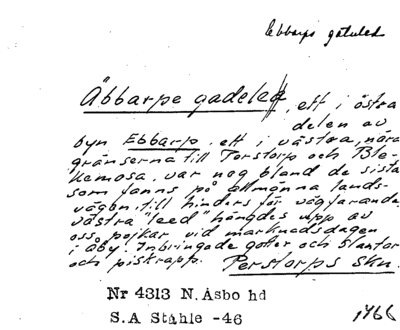 Ebbarps gatuled
Äbbarpe gadeled, ett i östra
delen av
byn Ebbarp, ett i västra, nära
gränserna till Torstorp och Ble-
kemosa. var nog bland de sista
som fanns på allmänna lands-
vägen, till hinders för vägfarande.
västra "leed" hängdes upp av
oss pojkar vid marknadsdagen
i Åby. Inbringade gotter och slantar
och piskrapp. Perstorps skn.
Nr 4313 N. Åsbo hd
S.A Ståhle -46
1966